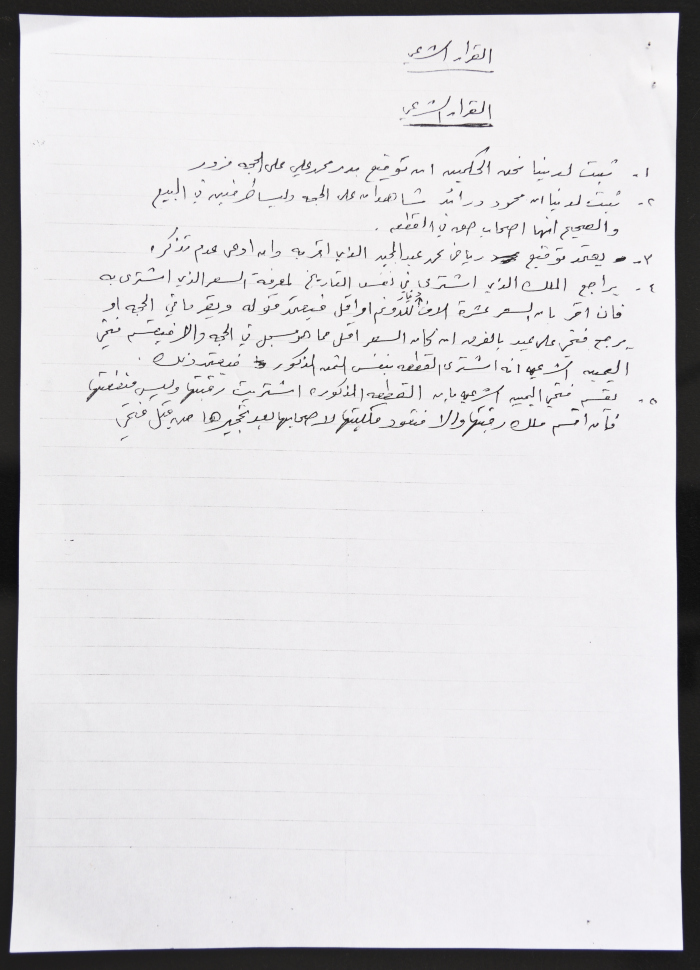 القرار الشرعي
القرار الشرعي
١- ثبت لدينا نحن الحكمين ان توقيع بدر محمد علي على الحجه مزور
٢- ثبت لدينا ان محمود ورائد شاهدان على الحجه وليسا طرفين في البيع
والصحيح انهما اصحاب حق في القطعه .
٣- يعتمد توقيع رياض محمد عبد المجيد الذي اقر به وان ادعى عدم تذكره
٤- يراجع الملك الذي اشترى في نفس التاريخ لمعرفة السعر الذي اشترى به
فان اقر بان السعر عشرة الاف دينار للدونم او اقل فيعتمد قوله ويقر ما في الحجه او
يرجع فتحي على عبيد بالفرق ان كان السعر اقل مما هو مسجل في الحجه والا فيقسم فتحي
اليمين الشرعي انه اشترى القطعه بنفس الثمن المذكور فيعتمد ذلك .
٥- يقسم فتحي اليمين الشرعي بان القطعه المذكوره اشتريت رقبتها وليس منفعتها
فان اقسم ملك رقبتها والا فتعود ملكيتها لاصحابها بعد تحجيرها من قبل فتحي